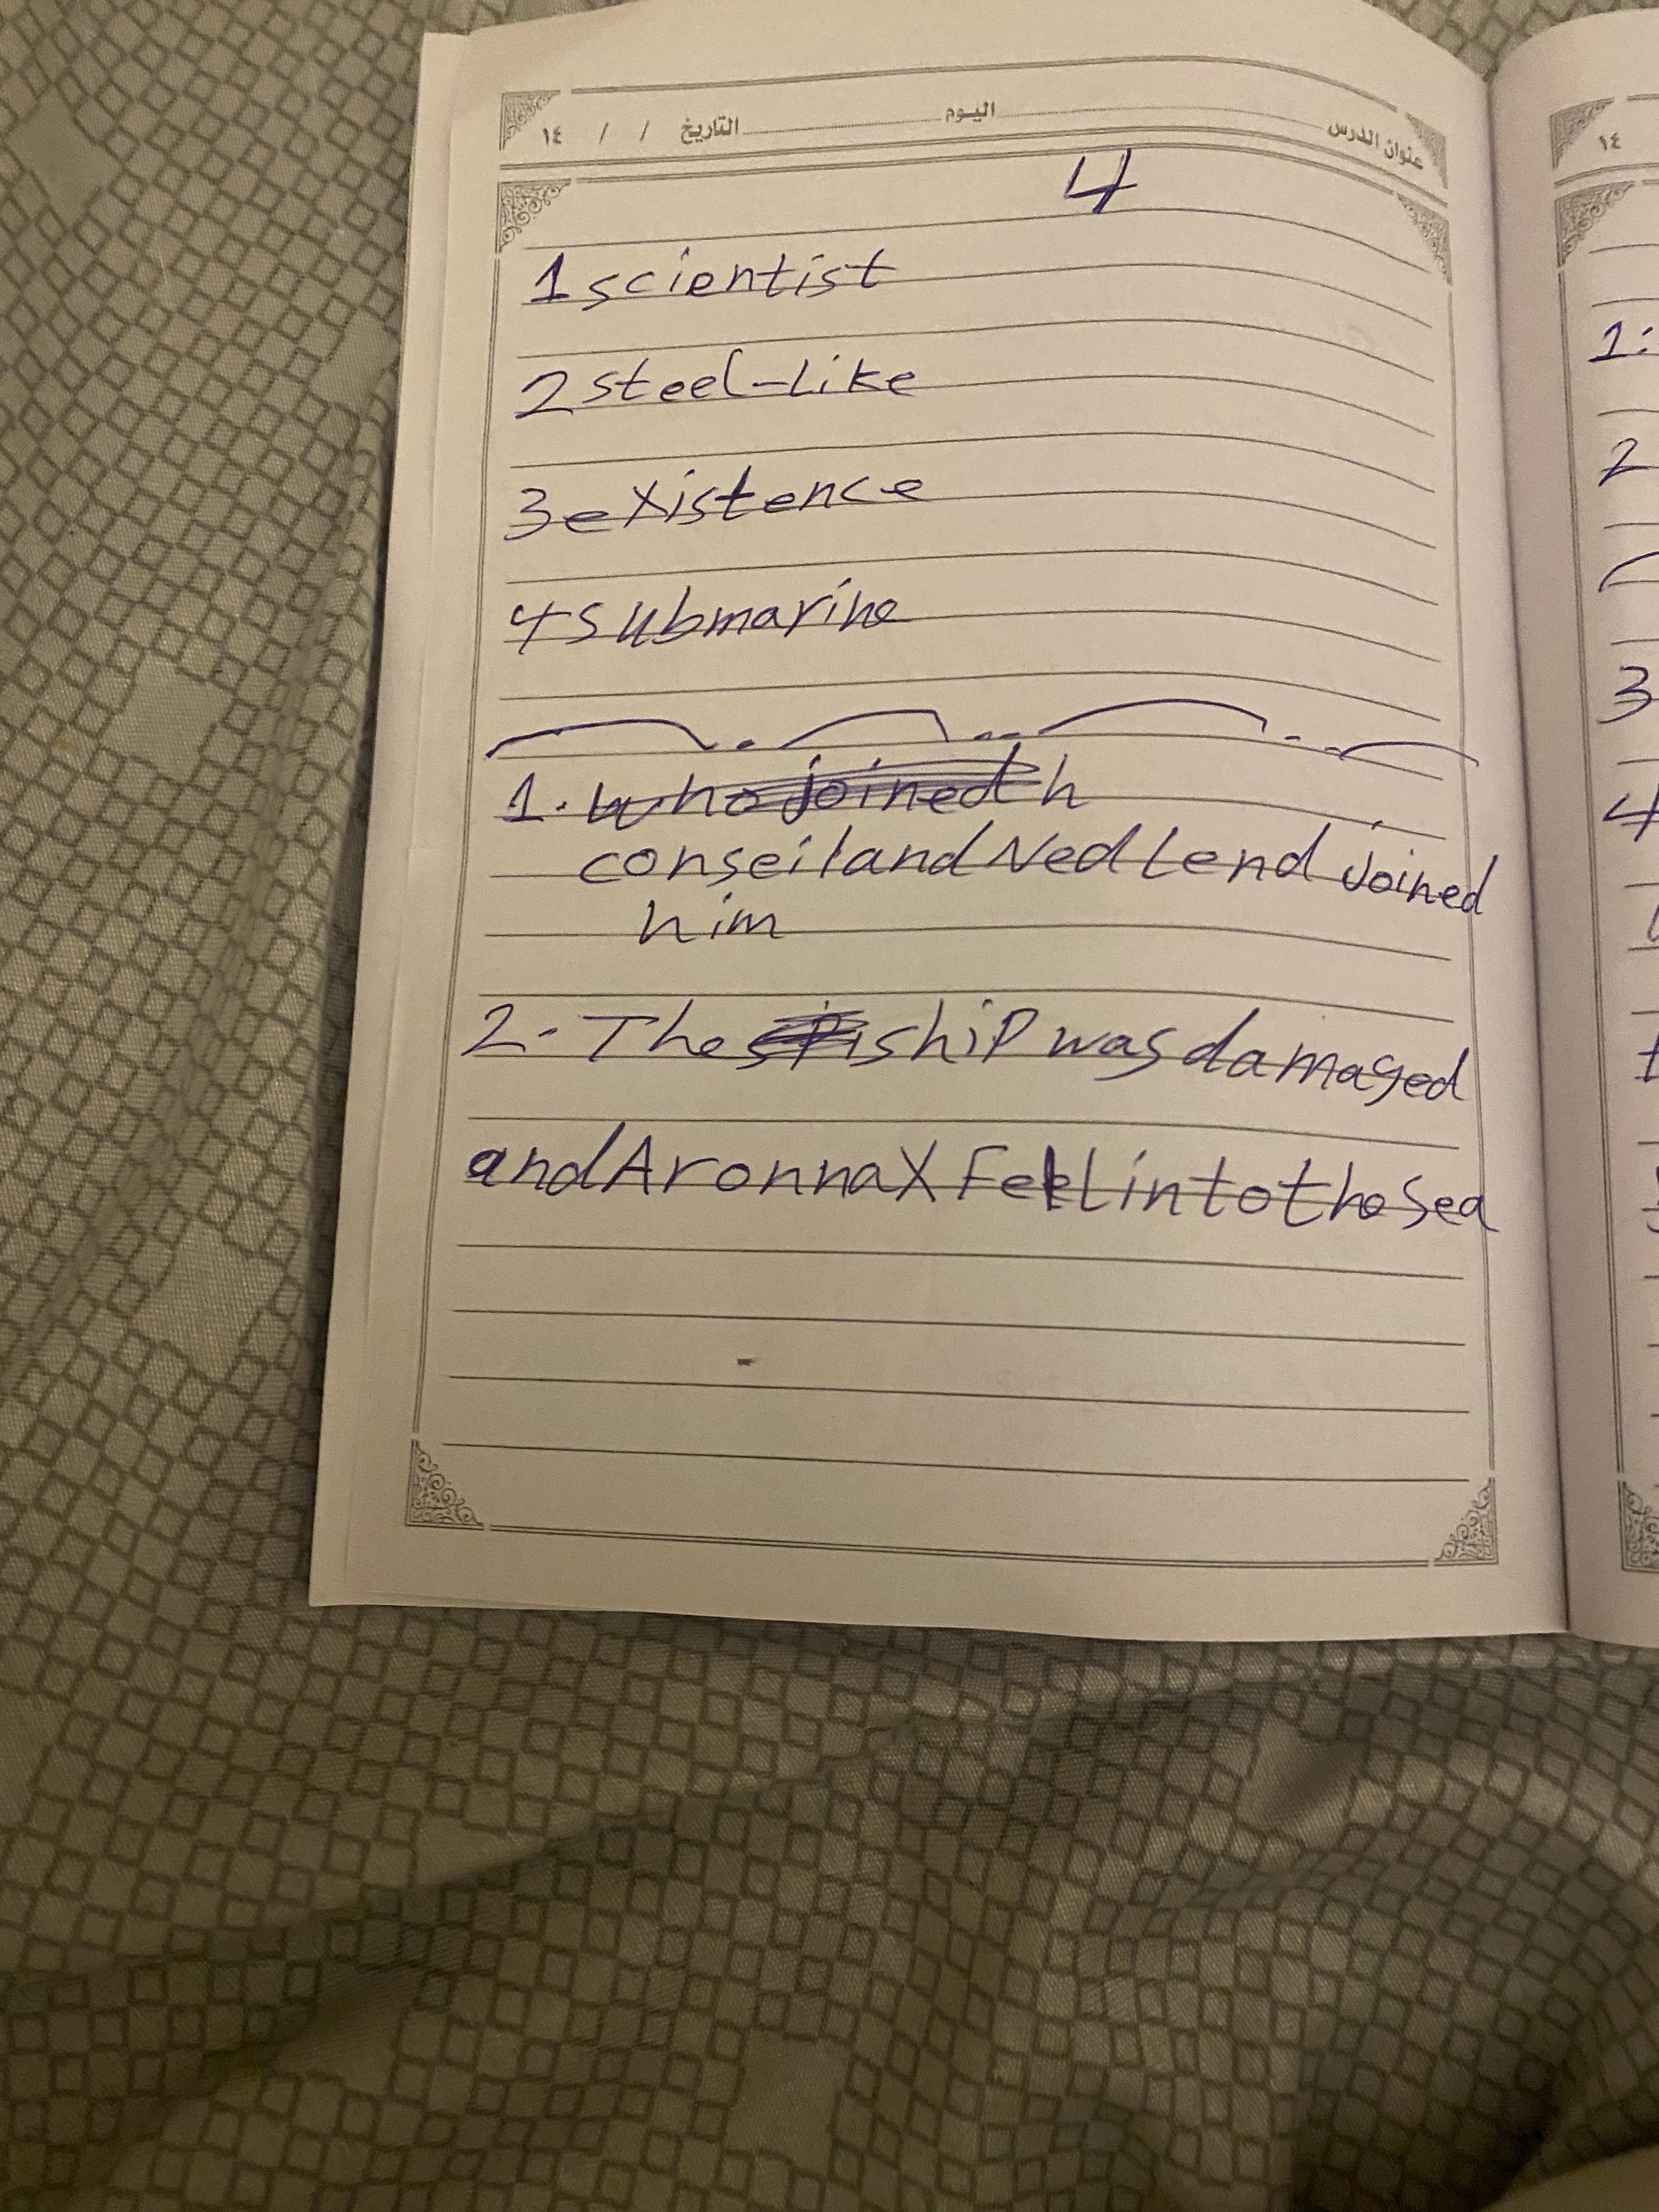 عنوان الدرس اليوم التاريخ / / ١٤
4
1 scientist
2 steel-like
3 existence
4 submarine
1. who joined h
conseil and Ned Lend joined
him
2- The ship was damaged
and AronnaX Fell into the Sea
١٤
1:
2
3
4